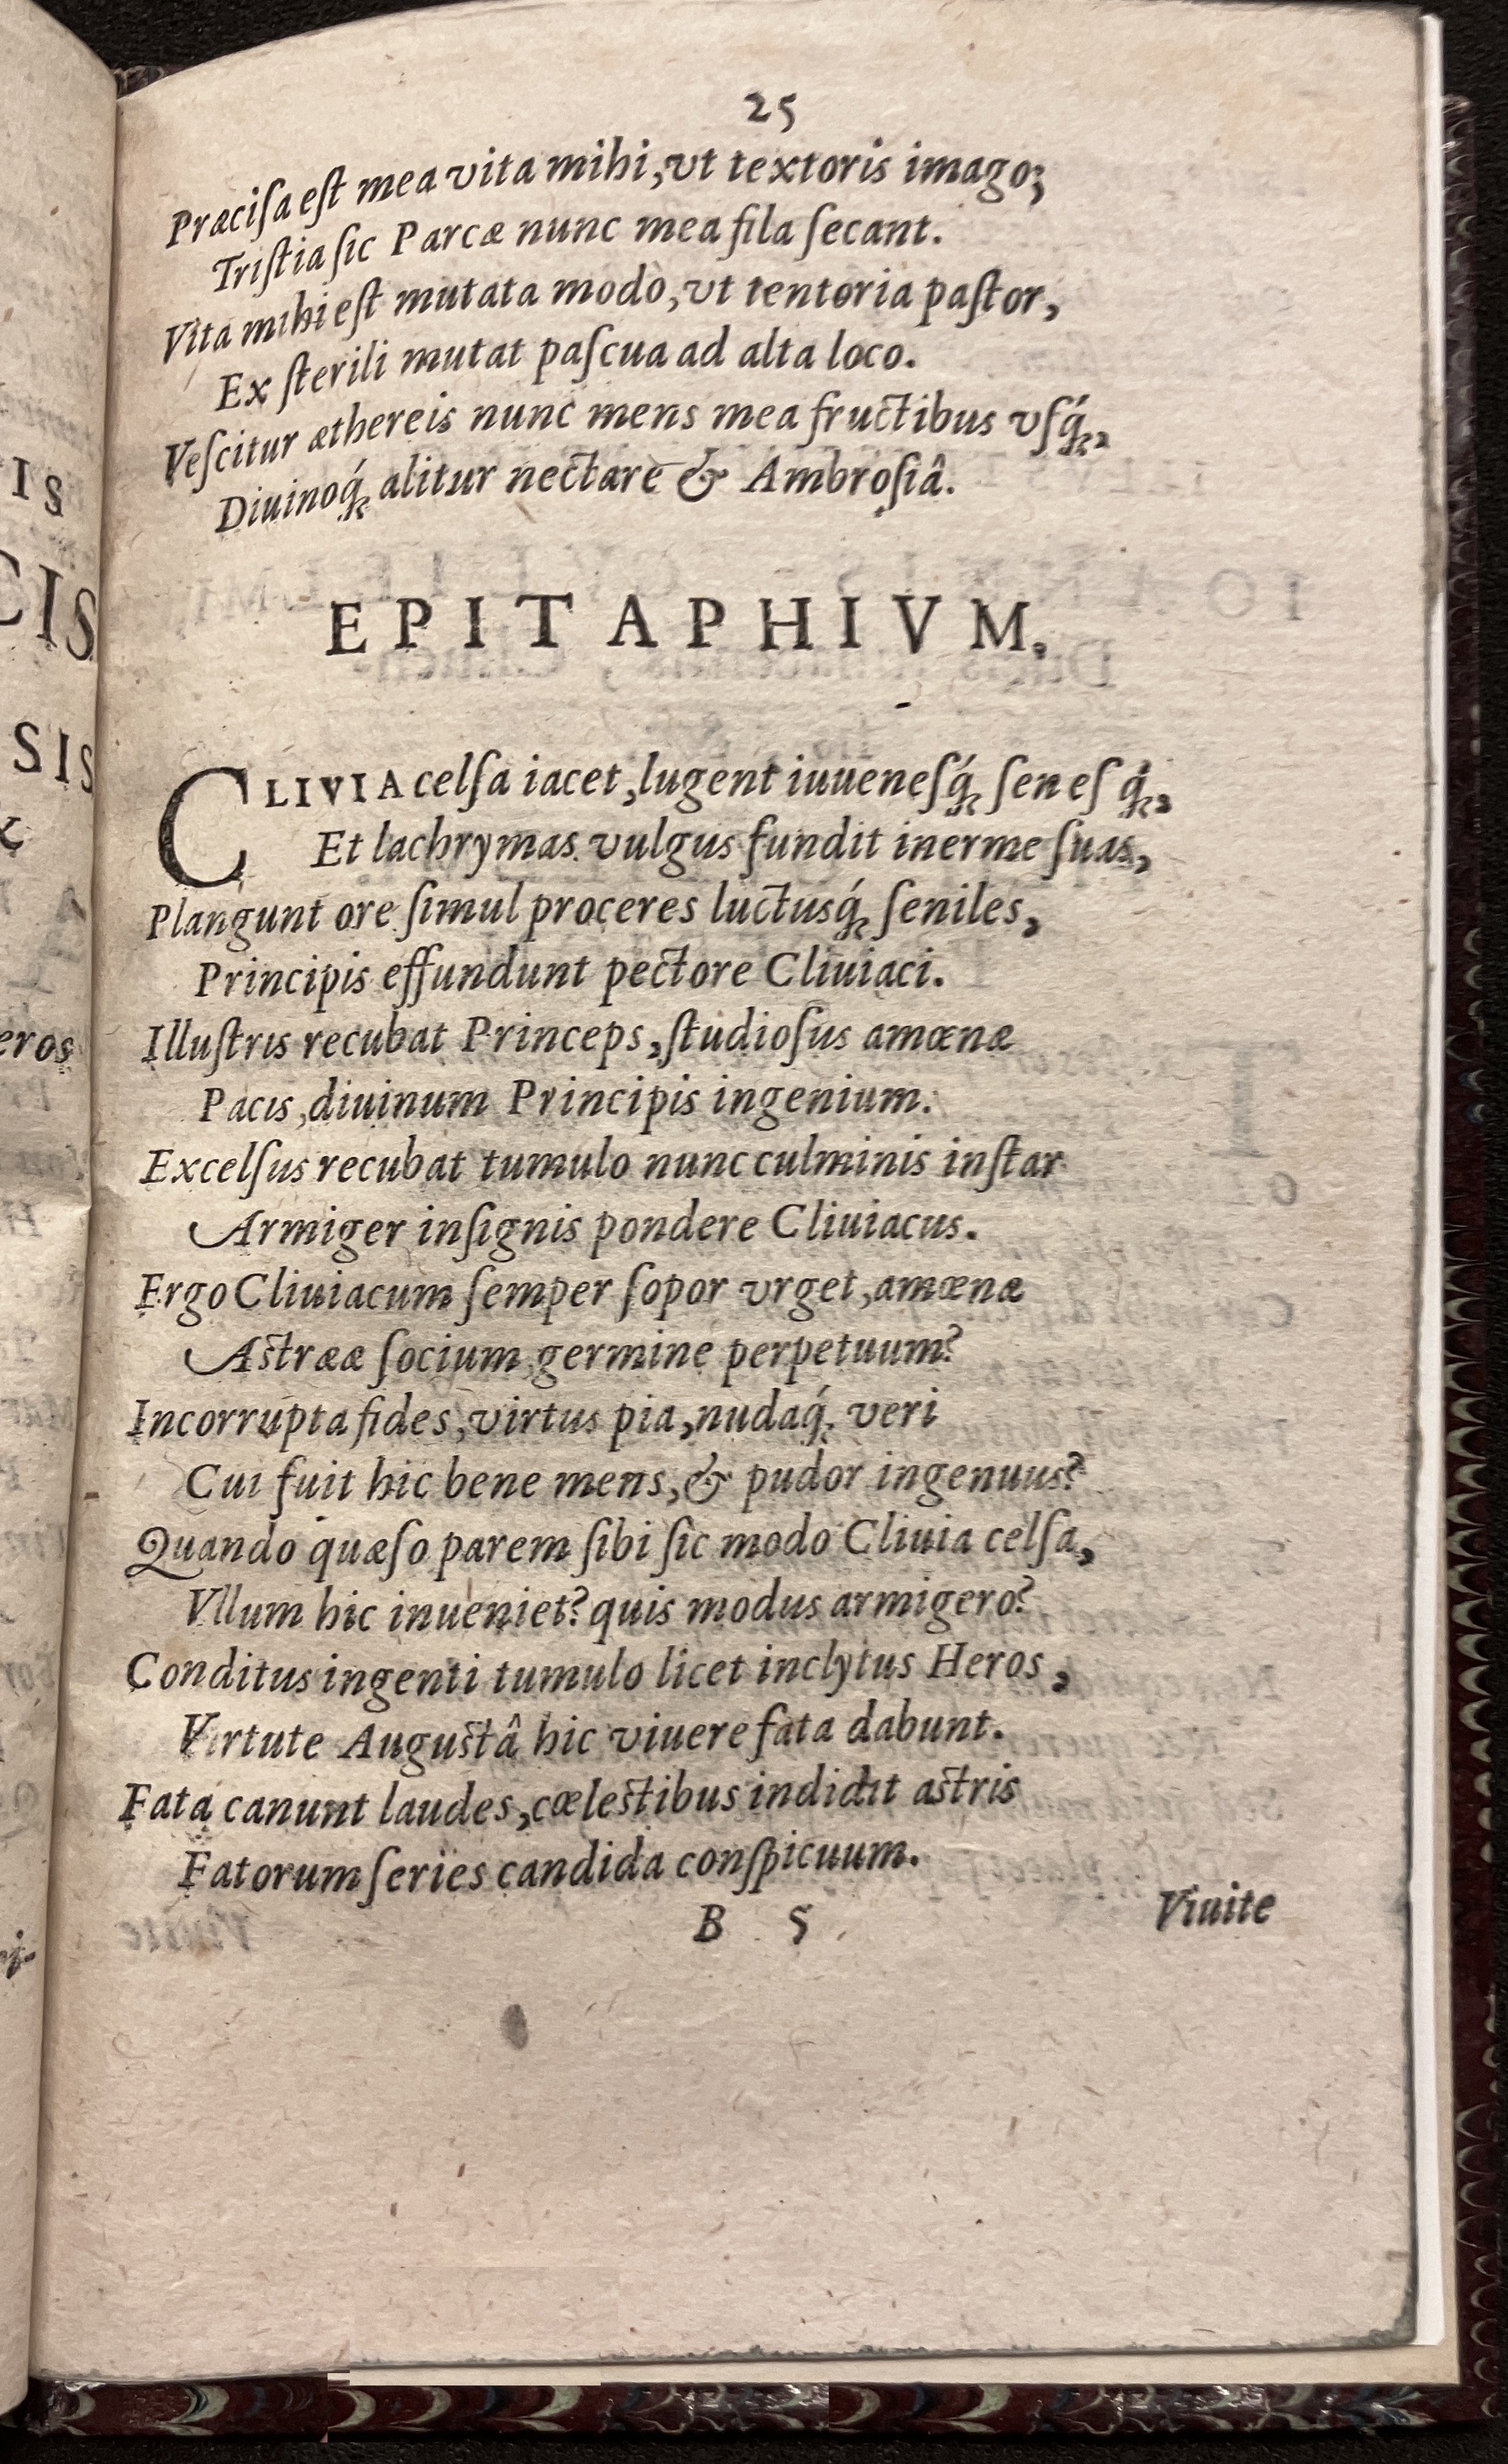 25
Præciſa eſt mea vita mihi, vt textoris imago;
Triſtia ſic Parcæ nunc mea fila ſecant.
Vita mihi eſt mutata modò, vt tentoria paſtor,
Ex ſterili mutat paſcua ad alta loco.
Veſcitur æthereis nunc mens mea fructibus vſq́;,
Diuinoq́; alitur nectare & Ambroſiâ.
EPITAPHIVM.
CLIVIA celſa iacet, lugent iuueneſq́; ſeneſq́;,
Et lachrymas vulgus fundit inerme ſuas,
Plangunt ore ſimul proceres luctusq́; ſeniles,
Principis effundunt pectore Cliuiaci.
Illuſtris recubat Princeps, ſtudioſus amœnæ
Pacis, diuinum Principis ingenium.
Excelſus recubat tumulo nunc culminis inſtar
Armiger inſignis pondere Cliuiacus.
Ergo Cliuiacum ſemper ſopor vrget, amœnæ
Astrææ ſocium germine perpetuum?
Incorrupta fides, virtus pia, nudaq́; veri
Cui fuit hic bene mens, & pudor ingenuus?
Quando quæſo parem ſibi ſic modo Cliuia celſa,
Vllum hic inueniet? quis modus armigero?
Conditus ingenti tumulo licet inclytus Heros,
Virtute Augustâ hic viuere fata dabunt.
Fata canunt laudes, cœlestibus indidit astris
Fatorum ſeries candida conſpicuum.
B 5
Viuite
IS
CIS
SIS
eros